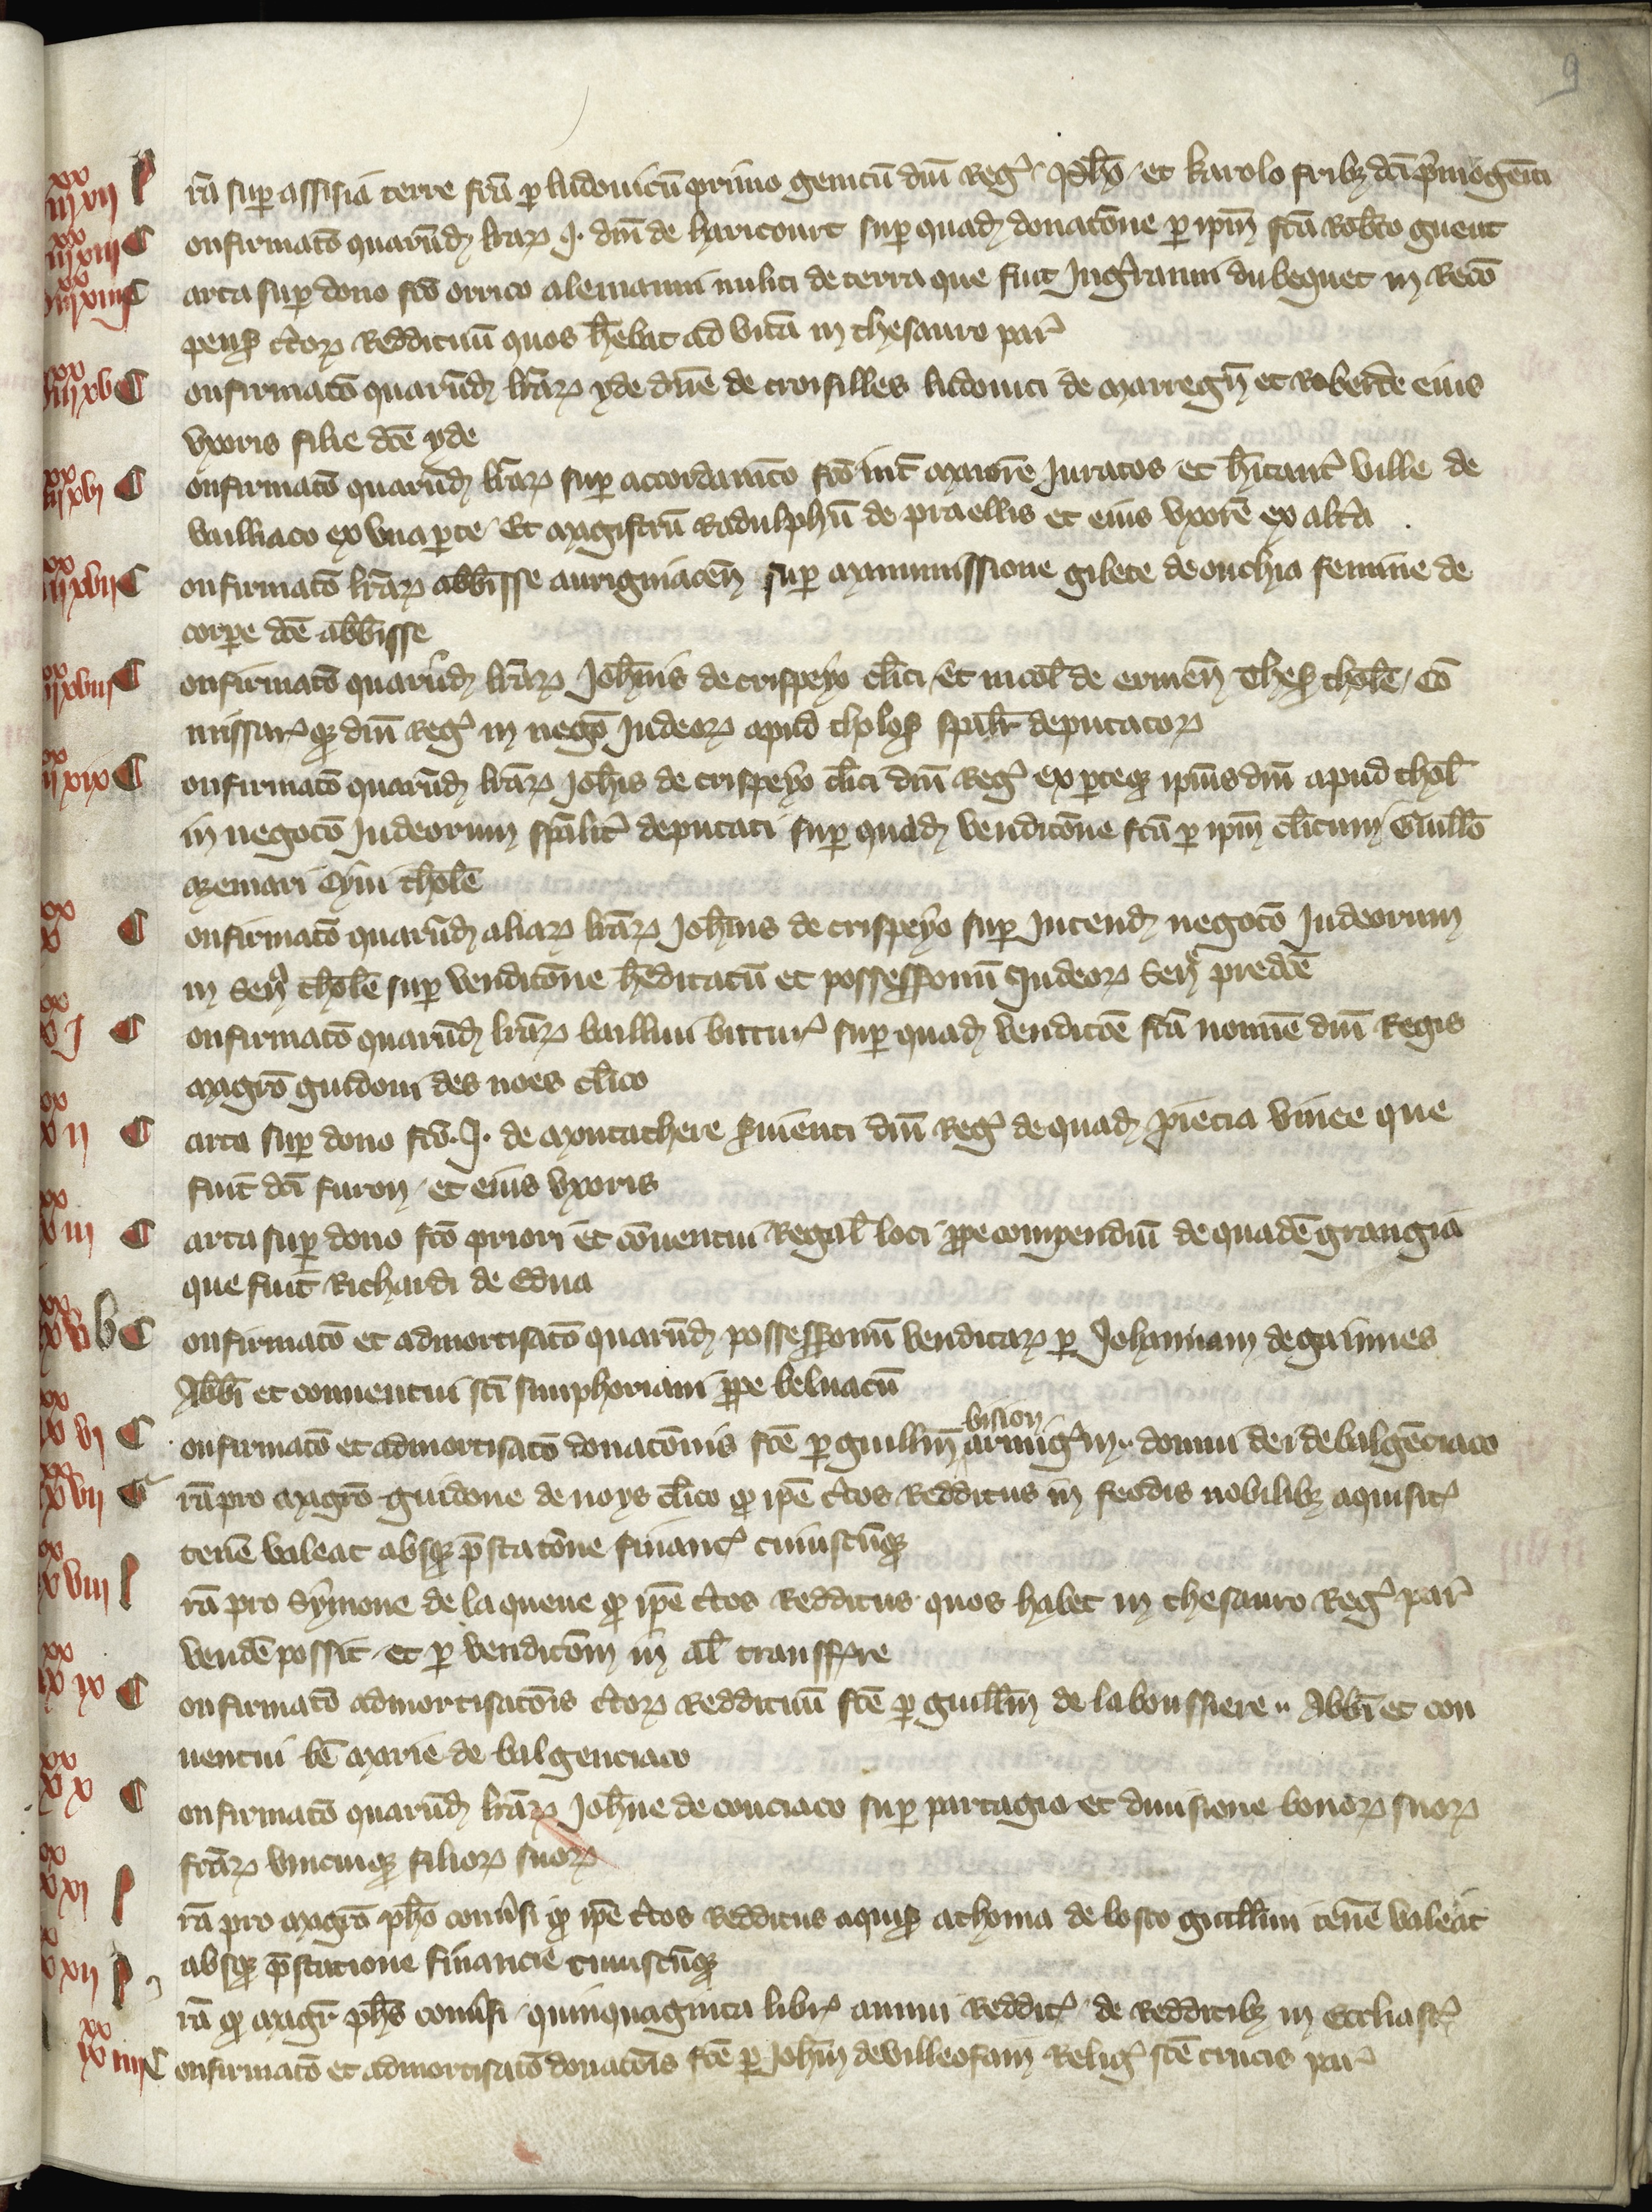 9
xx iiij xij lrā sup assisia terre fcā p ludouicū primo genitū dnī Reg Ph̄o et karolo frib dc̄i p̄mogēiti
xx iiij xiij Confirmatō quarūdꝫ lrāꝝ J. dnī de haricourt sup quadꝫ donatōne p ipm̄ fcā Rob̄to gueut
xx iiij xiiij Carta sup dono fcō orrico alemanni militi de terra que fuit Ingͬranni du bequet in Recō
penꝭ c̄toꝝ Reddituū quos h̄ebat ad vitā in thesauro par̄
xx iiij xv Confirmatō quarūdꝫ lrāꝝ yde dn̄e de croisilles ludouici de marregn̄ et Roberte eius
vxoris filie dc̄e yde
xx iiij xvj Confirmatō quarūdꝫ lrāꝝ sup accordamēto fcō int̄ maiorē Juratos et h̄itant̄ ville de
vailliaco ex vna p̱te Et magistrū Radulphū de praellis et eius vxorē ex altͣa
xx iiij xvij Confirmatō lrāꝝ abb̄isse aurigniacen̄ sup manumissione gilete de ouchia femine de
corpe dc̄e abb̄isse
xx iiij xviij Confirmatō quarūdꝫ lrāꝝ Joh̄nis de crispeyo cl̄ici Et nicol̄ de ermen̄ Thes̄ thol̄e Cō
missar̄ qꝫ dnī Reg in negō Judeoꝝ apud tholoꝭ spāl̄r deputatoꝝ
xx iiij xix Confirmatō quarūdꝫ lrāꝝ Joh̄is de crispeyo cl̄ici dnī Reg ex p̱teqꝫ ipius dnī apud thol̄
in negocō Judeorum spāliṯ deputati sup quadꝫ venditōne fcā p ipm̄ cl̄icum Guill̄o
Ademari Ciui thol̄e
xx v Confirmatō quarūdꝫ aliaꝝ lrāꝝ Joh̄nis de crispeyo sup Intendꝫ negocō Judeorum
in Sen̄ thol̄e sup venditōne h̄editatū et possessionū Judeoꝝ Sen̄ predc̄e
xx v j Confirmatō quarūdꝫ lrāꝝ bailliui bittur̄ sup quadꝫ venditōe fcā nomīe dnī Regis
magr̄o guidoni des noes cl̄ico
xx v ij Carta sup dono fcō. J. de montathere s̱uienti dnī Reg de quadꝫ piecia vinee que
fuit dc̄i furon et eius vxoris
xx v iij Carta sup dono fcō priori et cōuentui Regal̄ loci pͦpe compendiū de quadē grangia
que fuit Richardi de Edua
xx v b Confirmatō et admortisatō quarūdꝫ possessionū venditaꝝ p Johannam de gaunes
Abb̄i et conuentui scī simphoriani pͦpe beluacū
xx v vj Confirmatō et admortisatō donatōnis fcē p guill̄m bision armigͬm .. domui dei de balgēciaco
xx v vij lrā pro magr̄o guidone de noys cl̄ico qꝫ ip̄e c̄tos Redditus in feodis nobilibꝫ aquisit̄
tenē valeat absqꝫ p̄statōne financ̄ cuiuscūqꝫ
xx v viij lrā pro Symone de la queue qꝫ ip̄e c̄tos Redditus quos habet in thesauro Reg par̄
vendē possit et p venditōm in al̄ transferre
xx v ix Confirmatō admortisatōis c̄toꝝ Reddituū fcē p guill̄m de la boussiere .. Abb̄i et con
uentui bē marie de balgenciaco
xx v x Confirmatō quarūdꝫ lrāꝝ Joh̄ne de couciaco sup partagio et diuisione bonoꝝ suoꝝ
fcāꝝ vnicuiqꝫ filioꝝ suoꝝ
xx v xj lrā pro magr̄o ph̄o conūsi qꝫ ip̄e c̄tos Redditus aquiꝭ a thoma de losto guill̄mi tenē valeat
absqꝫ p̄statione financie cuiuscūqꝫ
xx v xij lrā qꝫ magr̄ ph̄s conūsi quinquaginta libr̄ annui Reddit̄ de Redditibꝫ in Eccliast̄
xx v iiij Confirmatō et admortisatō donatōis fcē p Joh̄m de willeofain Relig scē crucis par̄